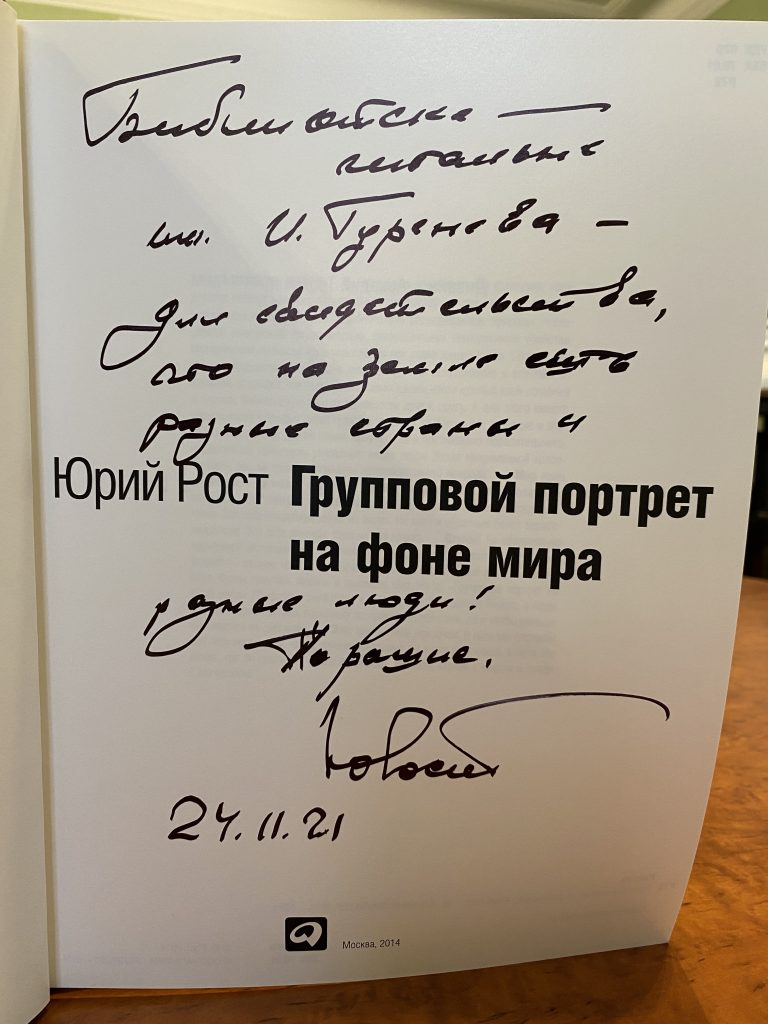 Библиотеке —
читальне
им. И. Тургенева —
для свидетельства,
что на земле есть
разные страны и
Юрий Рост Групповой портрет
на фоне мира
разные люди!
Хорошие.
ЮРост
24.11.21
Москва, 2014